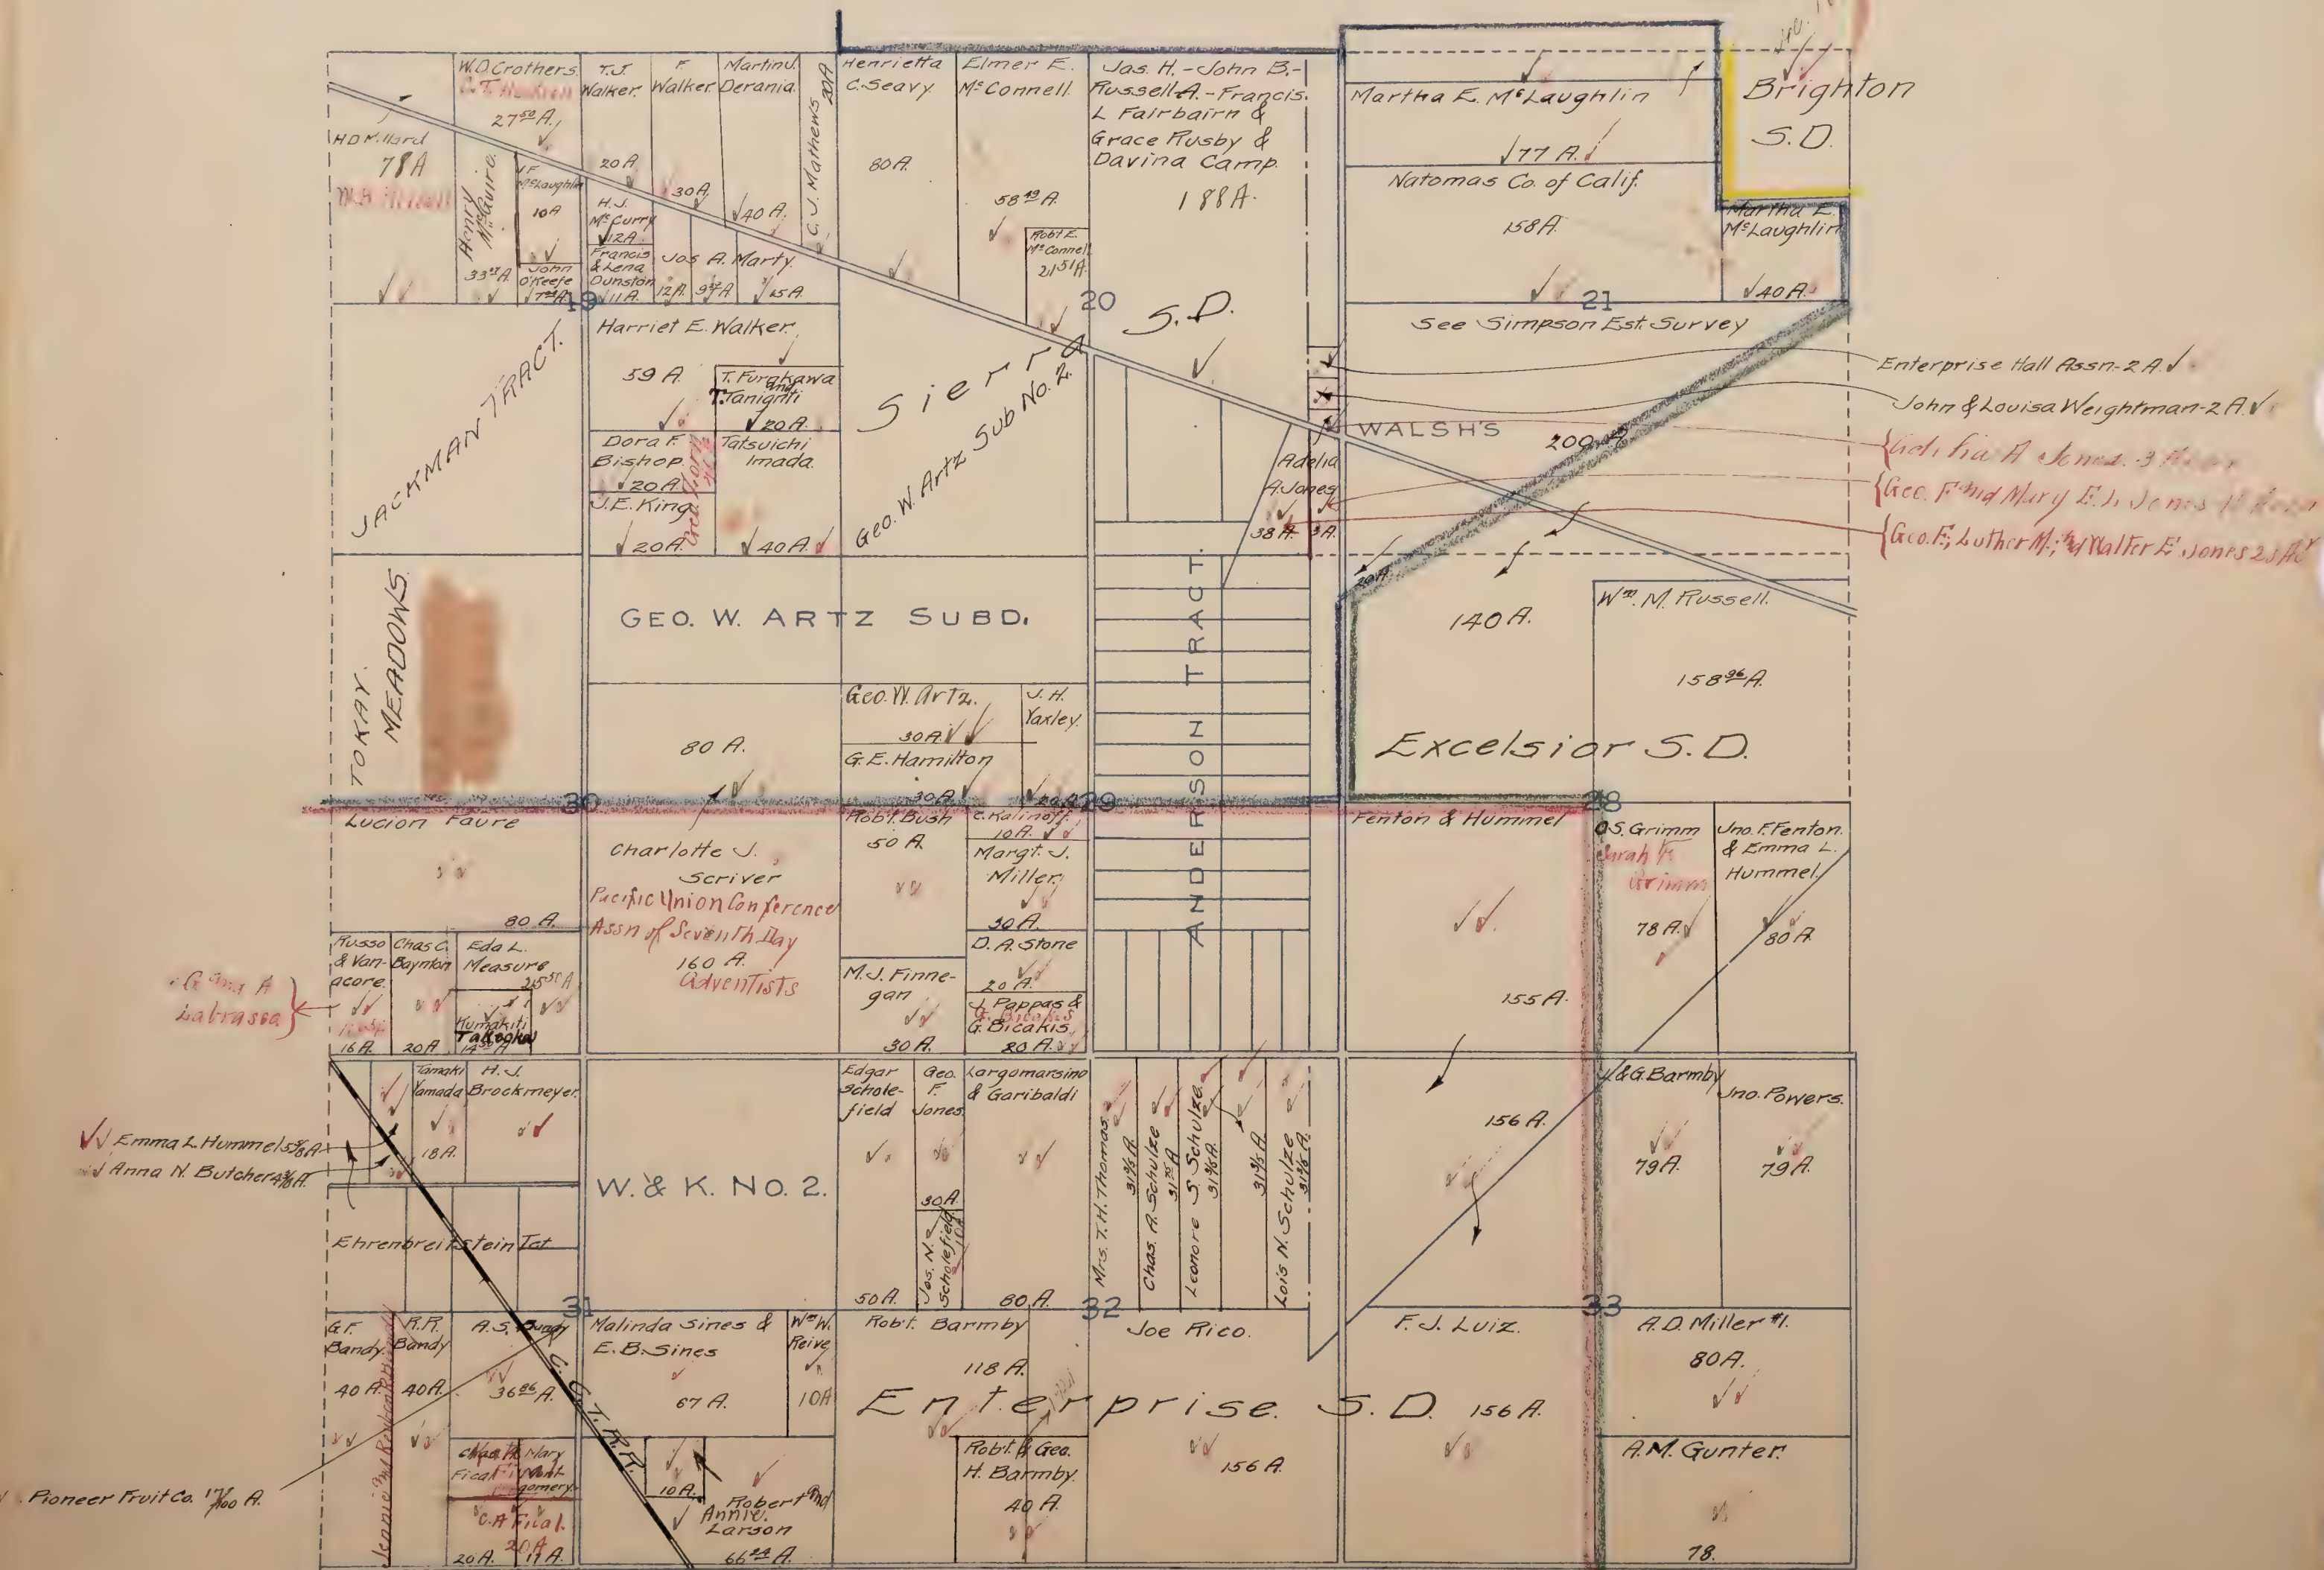 W.O. Crothers.
27 50 A.
T.J.
Walker.
20 A.
F.
Walker
30 A.
Martin J.
Derania.
40 A.
C. J. Mathews 20A
Henrietta
C. Seavy.
80 A.
Elmer E.
McConnell.
58 49 A.
Robt E.
McConnell
21 51 A.
Jas. H. - John B. -
Russell A. - Francis.
L Fairbairn &
Grace Rusby &
Davina Camp.
188 A.
Martha E. McLaughlin
77 A.
Natomas Co. of Calif.
158 A.
Brighton
S.D.
Martha E.
McLaughlin
40 A.
78 A
Henry
McGuire.
J.F.
McLaughlin
10 A
John
O'Keefe
H.J.
McCurry
12 A.
Francis
& Lena
Dunston
11 A.
Jos A. Marty.
12 A.
15 A.
19
20
21
Sierra
S.D.
See Simpson Est. Survey
Enterprise Hall Assn - 2 A.
John & Louisa Weightman - 2 A.
Geo. F. and Mary E. L. Jones
Geo. F.; Luther M.; and Walter E. Jones
JACKMAN TRACT.
Harriet E. Walker.
59 A.
T. Furukawa
and
20 A.
Dora F.
Bishop.
20 A.
J. E. King
20 A.
Tatsuichi
Imada.
40 A.
Geo. W. Artz Sub No. 2.
WALSH'S
200 A
Adelia
A. Jones
38 A.
3 A.
20 A
TOKAY.
MEADOWS.
GEO. W. ARTZ SUBD.
ANDERSON TRACT.
140 A.
Wm. M. Russell.
158 96 A.
Excelsior S.D.
80 A.
Geo. W. Artz.
30 A.
G. E. Hamilton
30 A.
J. H.
Yaxley.
20 A.
30
29
28
Lucion Faure
80 A.
Charlotte J.
Scriver
Pacific Union Conference
Assn of Seventh Day
160 A.
Adventists
Robt. Bush
50 A.
C. Kalinoff.
10 A.
Margt. J.
Miller.
30 A.
D. A. Stone
20 A.
M. J. Finne-
gan
30 A.
J. Pappas &
G. Bicakis
G. Bicakis.
20 A.
Fenton & Hummel
155 A.
O S. Grimm
Sarah
Grimm
78 A.
Jno. F. Fenton.
& Emma L.
Hummel.
80 A.
Russo
& Van-
acore.
16 A.
Chas C.
Baynton
20 A
Eda L.
Measure
Kumakiti
Takeoka
Labrassa
Tamaki
Yamada
18 A.
H. J.
Brockmeyer.
Emma L. Hummel
Anna N. Butcher
W. & K. NO. 2.
Ehrenbreitstein Tct
Edgar
Schole-
field
50 A.
Geo.
F.
Jones.
30 A.
Jos. N.
Scholefield.
10 A
Largomarsino
& Garibaldi
80 A.
Mrs. T. H. Thomas.
Chas. A. Schulze
Leonore S Schulze.
Lois N. Schulze
156 A.
J. & G. Barmby
79 A.
Jno. Powers.
79 A.
31
32
33
G F.
Bandy.
40 A.
R.R.
Bandy
40 A.
A. S. Bundy
36 86 A.
C. C. T. R.R.
Malinda Sines &
E. B. Sines
67 A.
Wm W.
Reive
10 A
Robt. Barmby
118 A.
Joe Rico.
F. J. Luiz.
A. D. Miller #1.
80 A.
Enterprise. S.D.
156 A.
Mary
Fical
C. A Fical.
20 A
20 A.
17 A.
10 A.
Robert and
Annie.
Larson
66 24 A.
Robt. & Geo.
H. Barmby.
40 A.
156 A.
A. M. Gunter.
78.
Pioneer Fruit Co. 17/100 A.